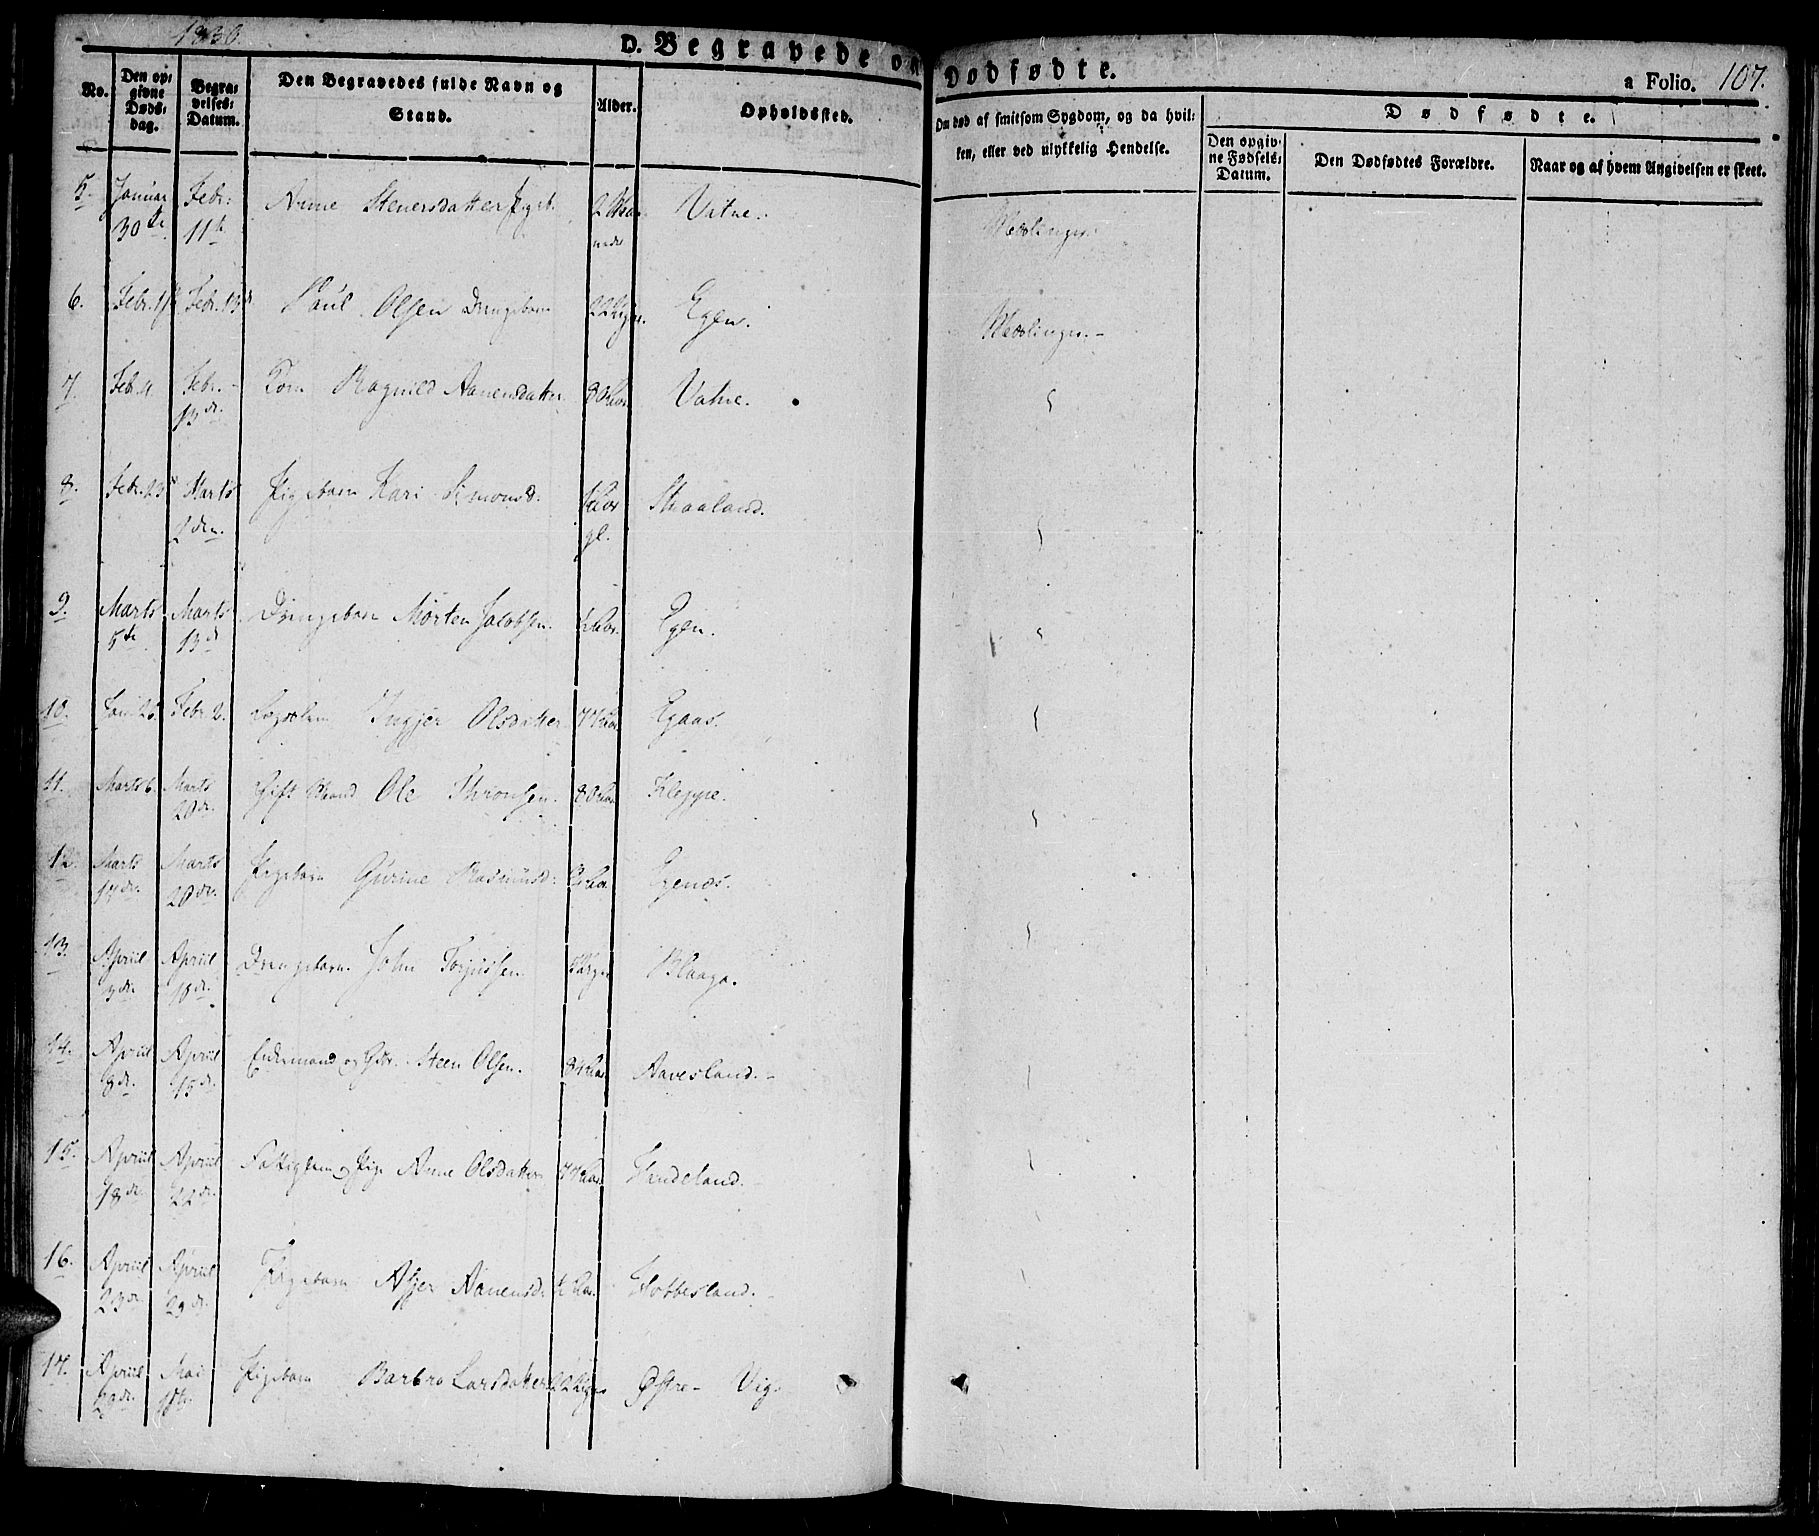 1830.
D. Begravede og Dødfødte.
a Folio. 107.
No.
Den opgivne Dødsdag.
Begravelses-Datum.
Den Begravedes fulde Navn og Stand.
Alder.
Opholdssted.
Om død af smitsom Sygdom, og da hvilken, eller ved ulykkelig Hendelse.
Dødfødte.
Den opgivne Fødsels-Datum.
Den Dødfødtes Forældre.
Naar og af hvem Angivelsen er skeet.
5. Januar 30te Febr: 11te Anne Stenersdatter Pigeb. 2 Vatne. Mæslinger.
6. Febr. Febr. 13d. Paul Olsen Drengebarn 22 Egen. Mæslinger.
7. Febr. 4. Febr. 13de. Kone Ragnild Aanensdatter 80 Aar Vatne.
8. Febr. 23 Marts 2den. Pigebarn Kari Simonsd. 1 Aar gl. Skaaland.
9. Marts 5te Marts 13d Drengebarn Morten Jacobsen. Aar. Egen.
10. Jan: 26. Febr. 2. Ingjer Olsdatter 77 Aar Egaas.
11. Marts 6. Marts 20de. Gift Mand Ole Thronsen. 80 Aar Kleppe.
12. Marts 17de. Marts 20de. Pigebarn Gurine Rasmusd: Aar. Egenæs.
13. Apriil 3de. Apriil 10de. Drengebarn John Torjussen Blaaga.
14. Apriil 8de. Apriil 15de. Enkemand og Steen Olsen. 84 Aar Aavesland.
15. Apriil 18de. Apriil 22de. Fattiglem Pige Anne Olsdatter 77 Aar. Handeland.
16. Apriil 23de. Apriil 29de. Pigebarn Asjer Aanensd. ½ Aar. Hobbesland.
17. Apriil 29de. Mai 1ste. Pigebarn Barbro Larsdatter 22 Uger Østre Vig.